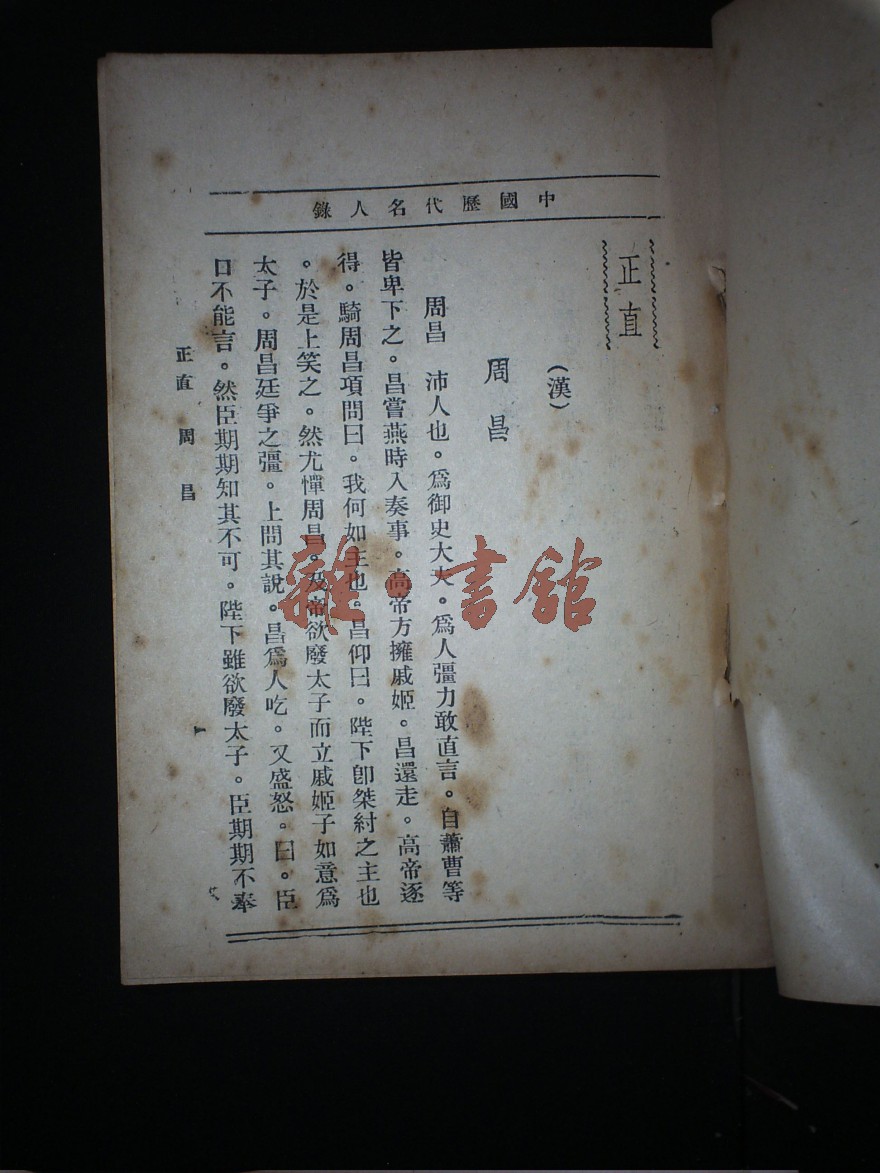 中國歷代名人錄
正直
（漢）
周昌
周昌　沛人也。爲御史大夫。爲人彊力敢直言。自蕭曹等
皆卑下之。昌嘗燕時入奏事。高帝方擁戚姬。昌還走。高帝逐
得。騎周昌項問曰。我何如主也。昌仰曰。陛下卽桀紂之主也
。於是上笑之。然尤憚周昌。及帝欲廢太子而立戚姬子如意爲
太子。周昌廷爭之彊。上問其說。昌爲人吃。又盛怒。曰。臣
口不能言。然臣期期知其不可。陛下雖欲廢太子。臣期期不奉
正直　周昌
雜·書館